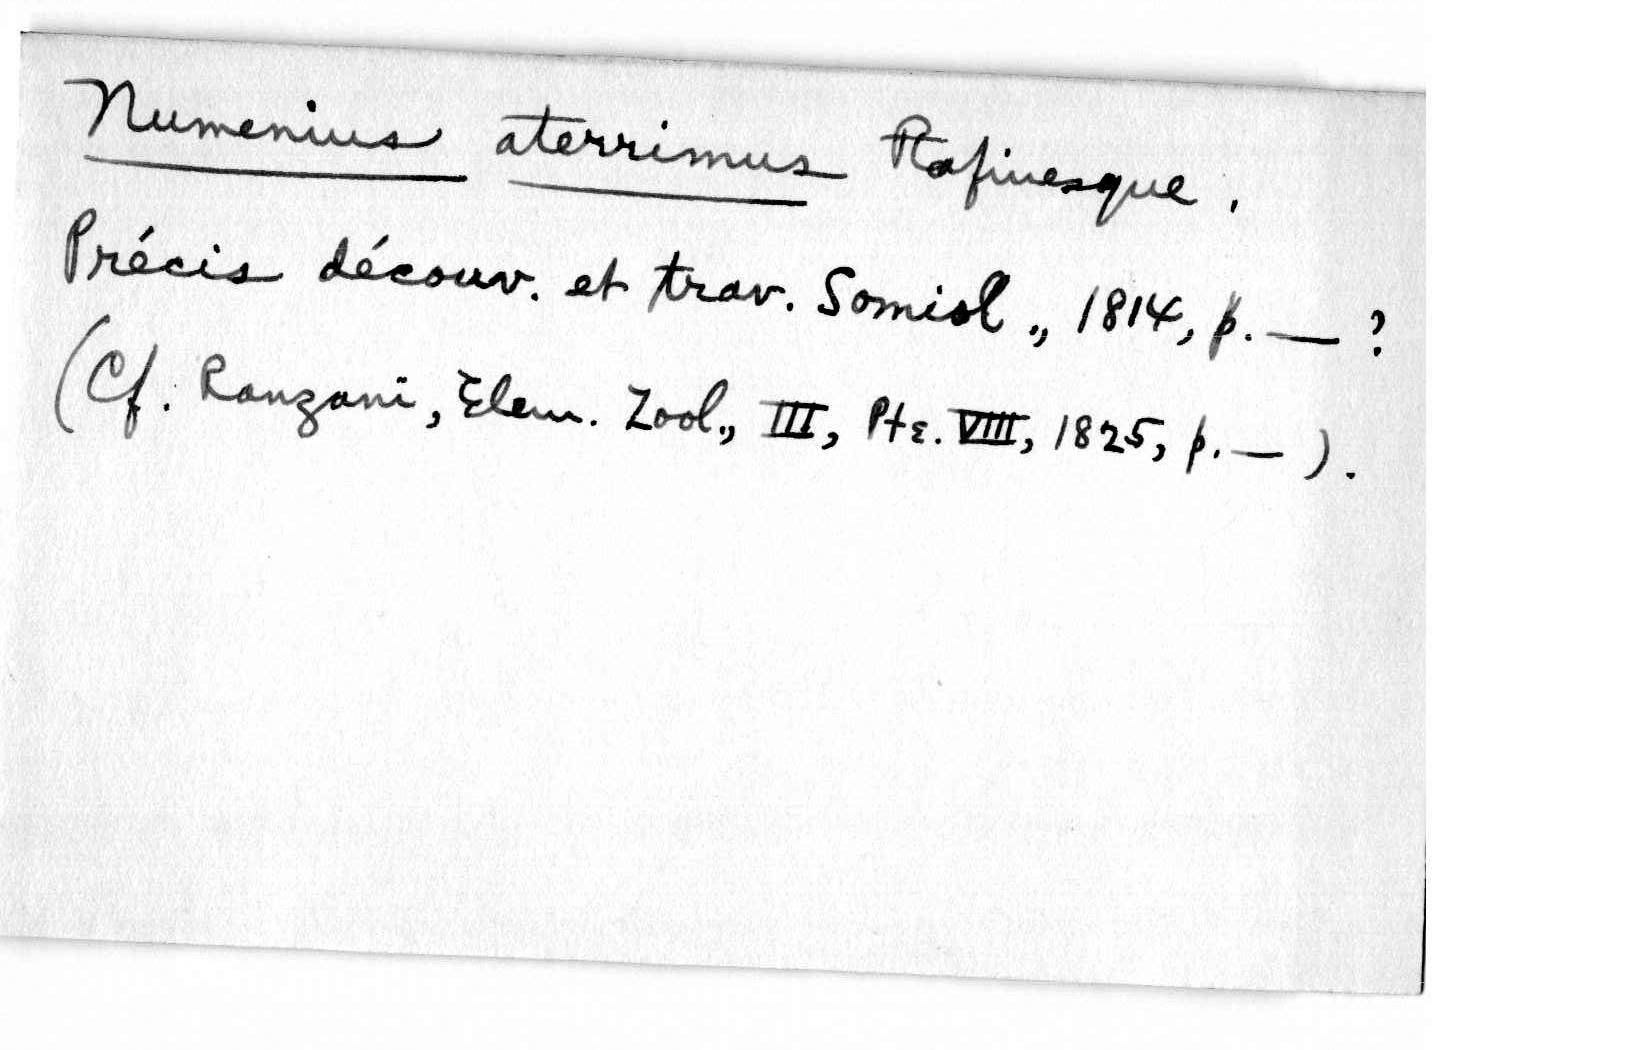 Numenius aterrimus Rafinesque.
Précis découv. et trav. Somiol., 1814, p. — ?
(Cf. Ranzani, Elem. Zool., III, Pte. VIII, 1825, p. — ).